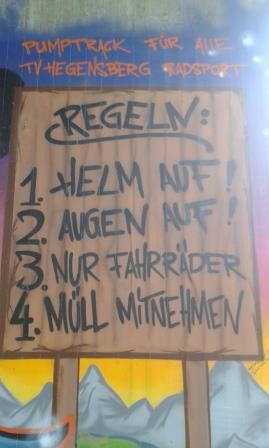 PUMPTRACK FÜR ALLE
TV HEGENSBERG RADSPORT
REGELN:
1. HELM AUF!
2. AUGEN AUF!
3. NUR FAHRRÄDER
4. MÜLL MITNEHMEN